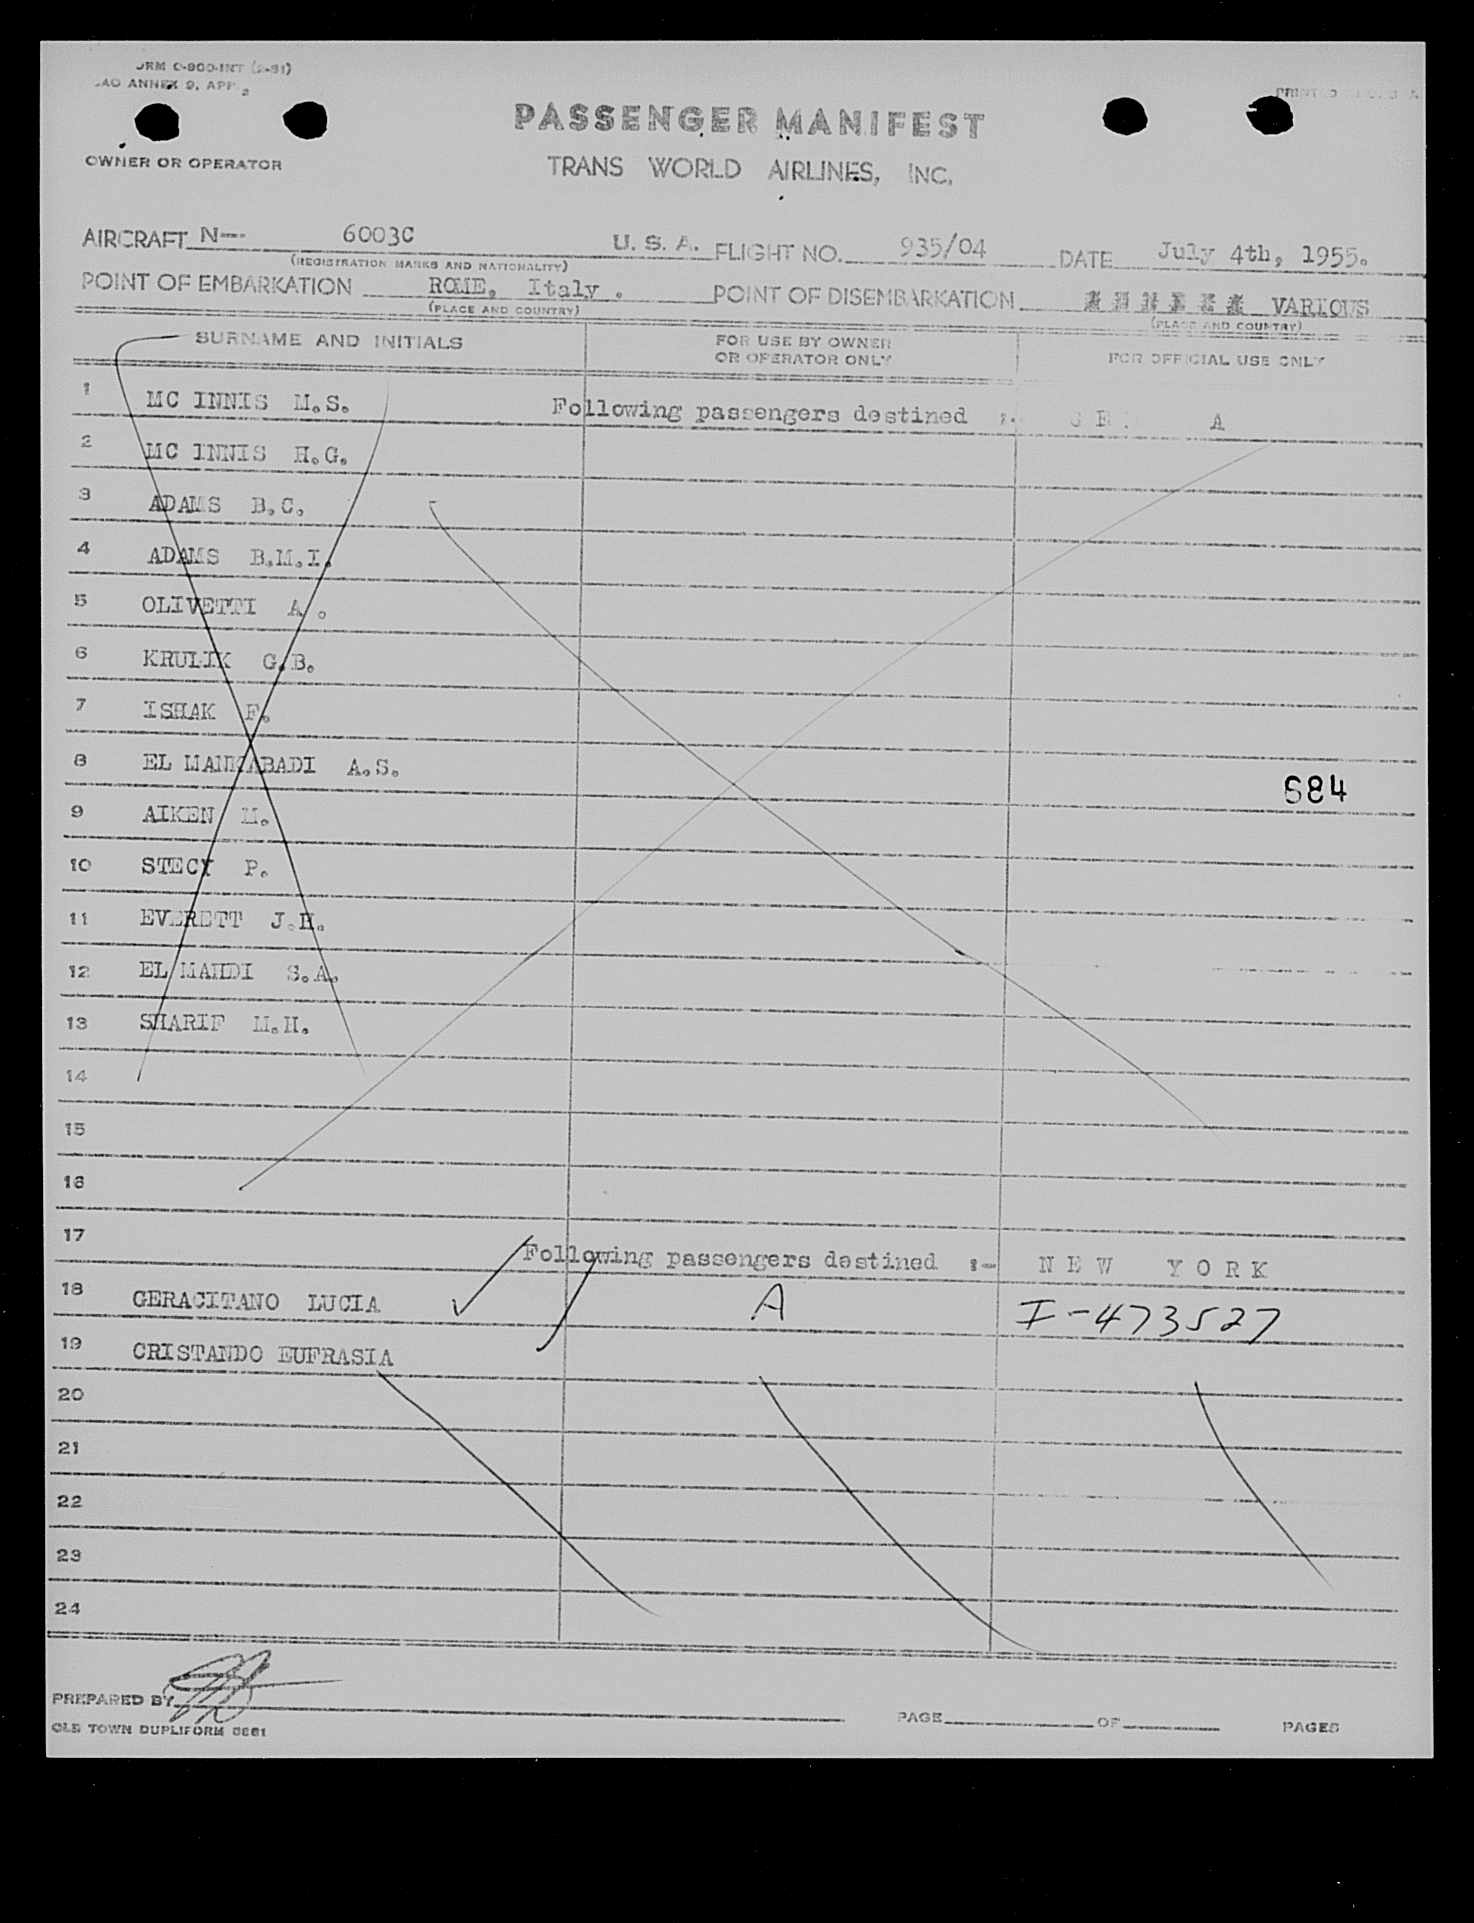 ORM C-900-INT (2-51)
ANNEX 9, APP 2
PASSENGER MANIFEST
OWNER OR OPERATOR
TRANS WORLD AIRLINES, INC.
AIRCRAFT N-- 6003C U. S. A. FLIGHT NO. 935/04 DATE July 4th, 1955.
(REGISTRATION MARKS AND NATIONALITY)
POINT OF EMBARKATION ROME, Italy . POINT OF DISEMBARKATION VARIOUS
(PLACE AND COUNTRY) (PLACE AND COUNTRY)
SURNAME AND INITIALS FOR USE BY OWNER OR OPERATOR ONLY FOR OFFICIAL USE ONLY
1 MC INNIS M.S. Following passengers destined
2 MC INNIS H.G.
3 ADAMS B.C.
4 ADAMS B.M.I.
5 OLIVETTI A .
6 KRULIK G.B.
7 ISHAK F.
8 EL MANKABADI A.S.
684
9 AIKEN M.
10 STECY P.
11 EVERETT J.H.
12 EL MAHDI S.A.
13 SHARIF M.H.
14
15
16
17 Following passengers destined :- N E W Y O R K
18 GERACITANO LUCIA A I-473527
19 CRISTANDO EUFRASIA
20
21
22
23
24
PREPARED BY
PAGE OF PAGES
OLD TOWN DUPLIFORM